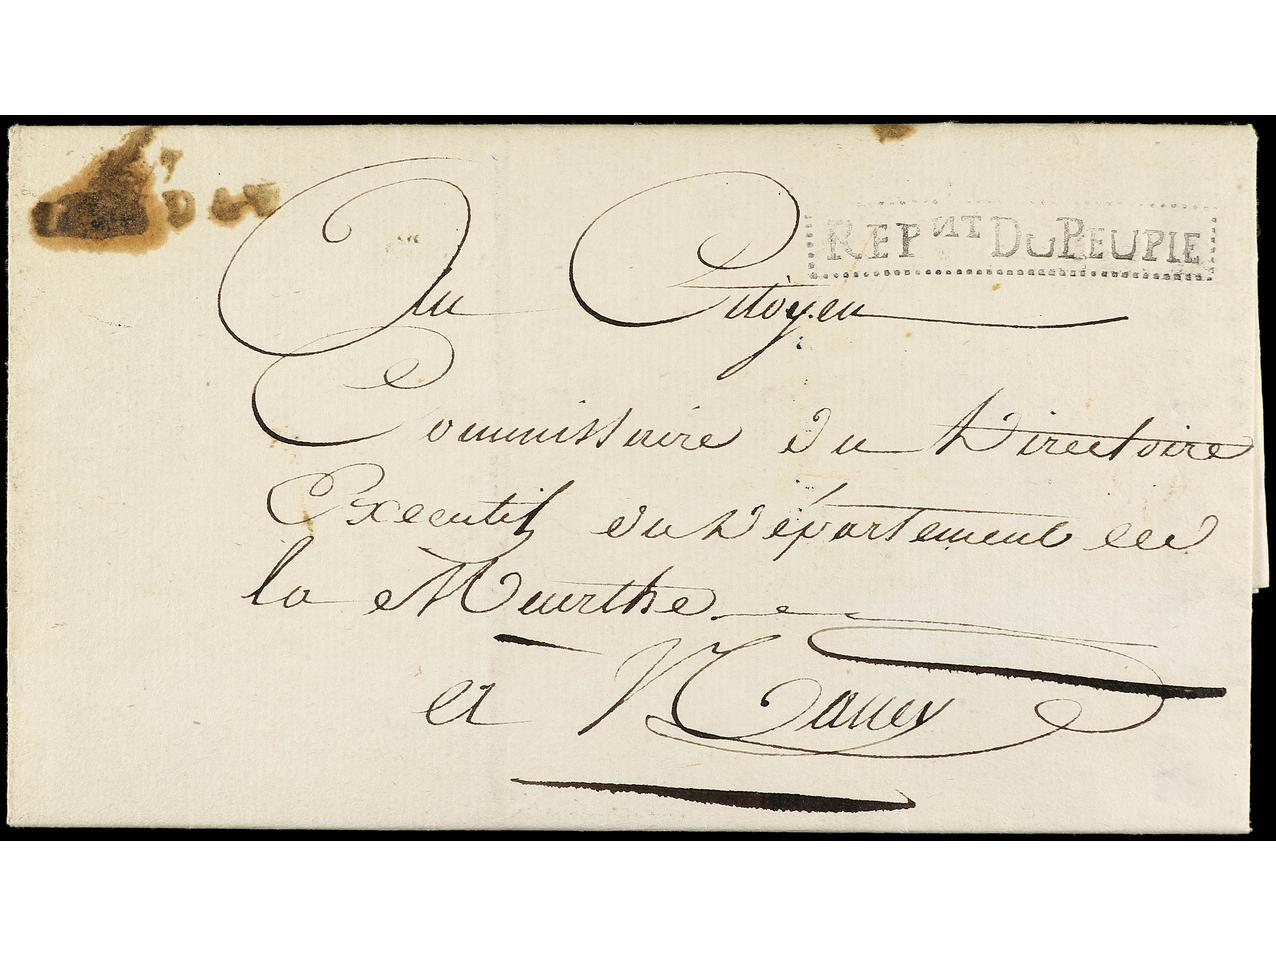 REPNT DUPEUPLE
Au Citoyen
Commissaire du Directoire
Executif du Département de
la Meurthe.
a Nancy